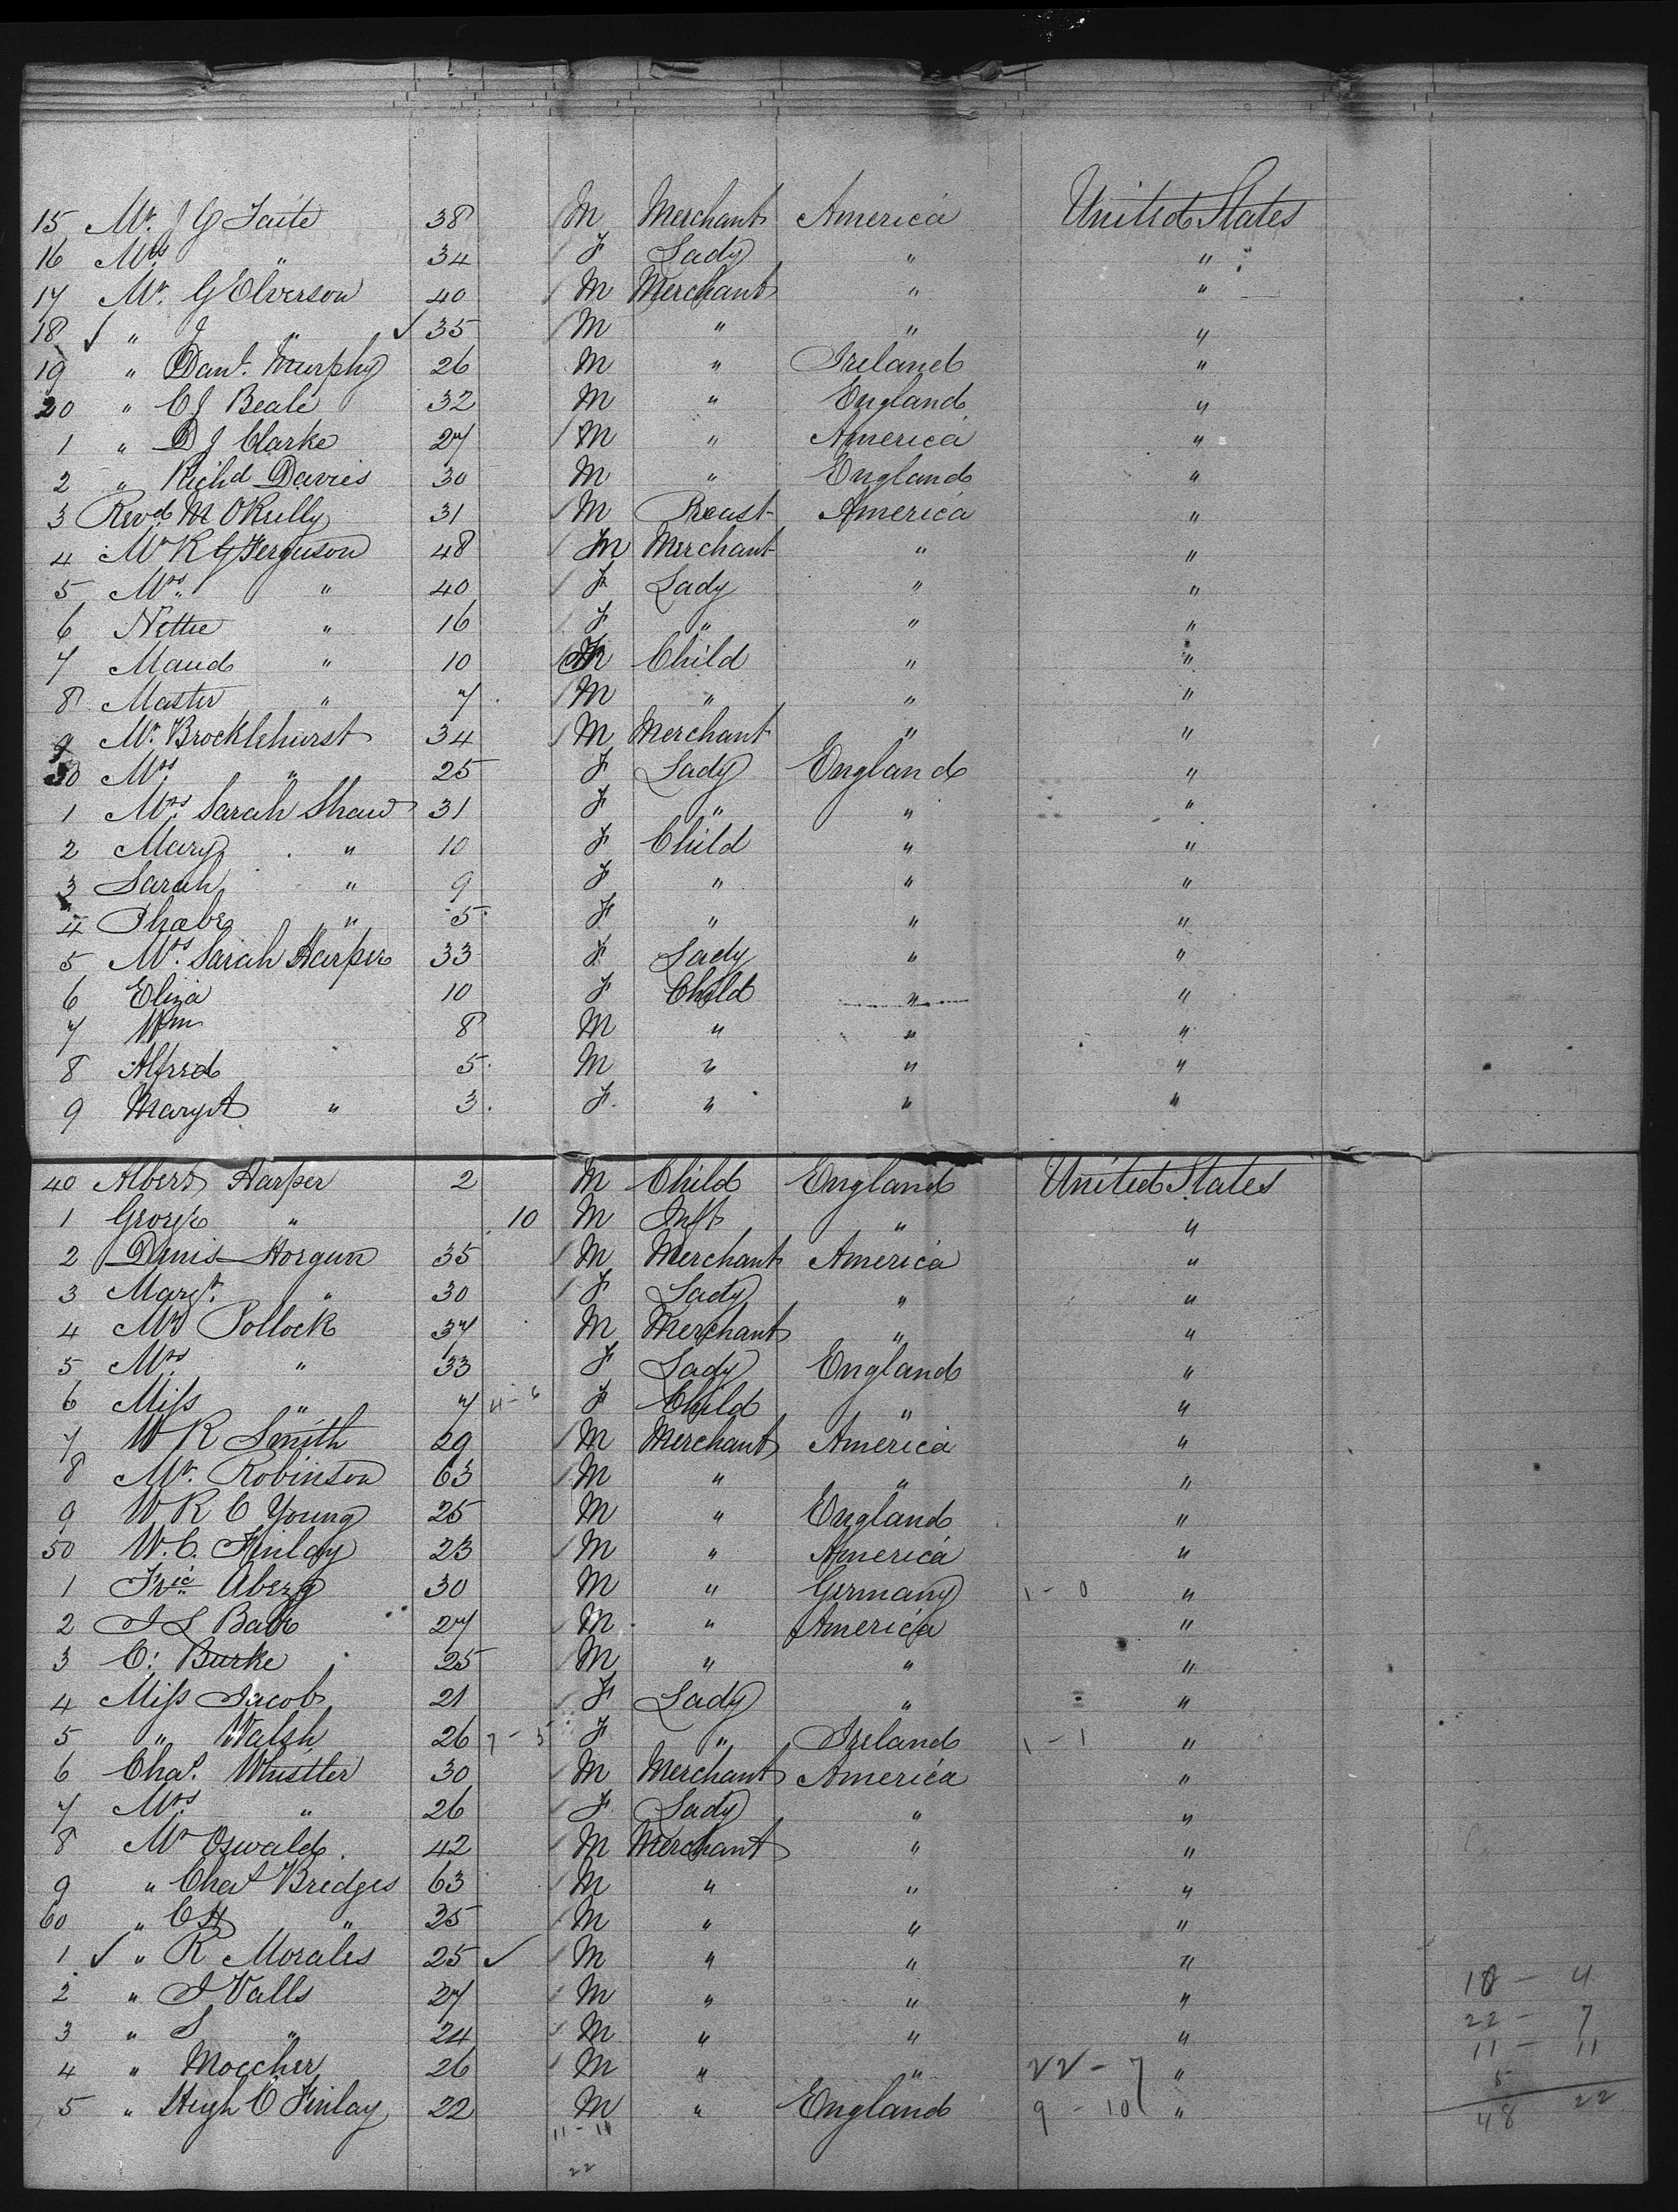 15 Mr. J G Taite 38 M Merchant America United States
16 Mrs " 34 F Lady " "
17 Mr. G Elverson 40 M Merchant " "
18 ✓ " J " ✓ 35 M " " "
19 " Danl. Murphy 26 M " Ireland "
20 " C J Beale 32 M " England "
1 " D J Clarke 27 M " America "
2 " Richd Davies 30 M " England "
3 Revd M OKelly 31 M Preast America "
4 Mr R G Ferguson 48 M Merchant " "
5 Mrs. " 40 F Lady " "
6 Nettie " 16 F " " "
7 Maud " 10 F Child " "
8 Master " 7 M " " "
9 Mr. Brocklehurst 34 M Merchant " "
30 Mrs " 25 F Lady England "
1 Mrs Sarah Shaw 31 F " " "
2 Mary " 10 F Child " "
3 Sarah " 9 F " " "
4 Phoebe " 5 F " " "
5 Mrs. Sarah Harper 33 F Lady " "
6 Eliza 10 F Child " "
7 Wm 8 M " " "
8 Alfred 5 M " " "
9 Mary A " 3 F " " "
40 Albert Harper 2 M Child England United States
1 George " 10 M Inft " "
2 Denis Horgan 35 M Merchant America "
3 Margt. " 30 F Lady " "
4 Mr Pollock 37 M Merchant " "
5 Mrs. " 33 F Lady England "
6 Miss " 7 11-6 F Child " "
7 W R Smith 29 M Merchant America "
8 Mr. Robinson 63 M " " "
9 W R C Young 25 M " England "
50 W. C. Finlay 23 M " America "
1 Fric Aberg 30 M " Germany 1-0 "
2 J L Babb 27 M " America "
3 C. Burke 25 M " " "
4 Miss Jacob 21 F Lady " "
5 " Walsh 26 7-5 F " Ireland 1-1 "
6 Chas. Whistler 30 M Merchant America "
7 Mrs " 26 F Lady " "
8 Mr Oswald 42 M Merchant " "
9 " Chas Bridges 63 M " " "
60 " C H " 35 M " " "
1 ✓ " R Morales 25 ✓ M " " "
2 " J Valls 27 M " " " 18 - 4
3 " S " 24 M " " " 22 - 7
4 " Moccher 26 M " " 22-7 " 11 - 11
5 " Hugh C Finlay 22 M " England 9-10 " 5
48 22
11-11
22